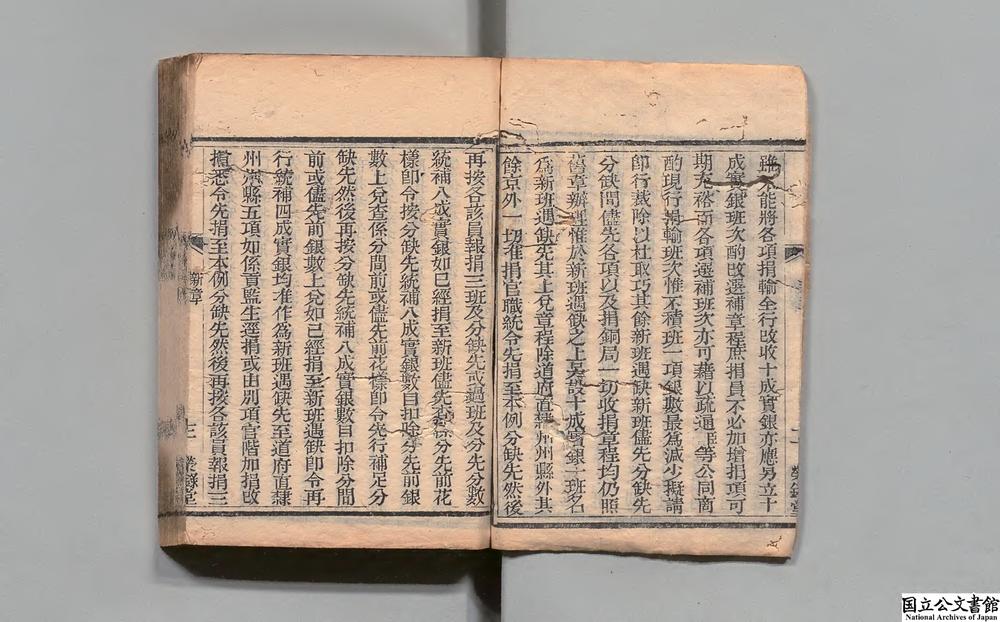 雖不能將各項捐輸全行改收十成實銀亦應另立十
成實銀班次酌改選補章程庶捐員不必加增捐項可
期充裕而各項選補班次亦可藉以疏通臣等公同商
酌現行捐輸班次惟不積班一項銀數最為減少擬請
即行裁除以杜取巧其餘新班遇缺新班儘先分缺先
分缺間儘先各項以及捐銅局一切收捐章程均仍照
舊章辦理惟於新班遇缺之上另立十成實銀一班名
為新班遇缺先其上兌章程除道府直隸州州縣外其
餘京外一切准捐官職統令先捐至本例分缺先然後
再按各該員報捐三班及分缺先或過班及分先分數
統補八成實銀如已經捐至新班儘先分先前花
樣即令按分缺先統補八成實銀數目扣除分先前銀
數上兌查係分間前或儘先前花樣即令先行補足分
缺先然後再按分缺先統補八成實銀數目扣除分間
前或儘先前銀數上兌如已經捐至新班遇缺即令再
行統補四成實銀均准作為新班遇缺先至道府直隸
州州縣五項如係貢監生逕捐或由別項官階加捐改
捐悉令先捐至本例分缺先然後再按各該員報捐三
新章
十二
榮錄堂
國立公文書館
National Archives of Japan